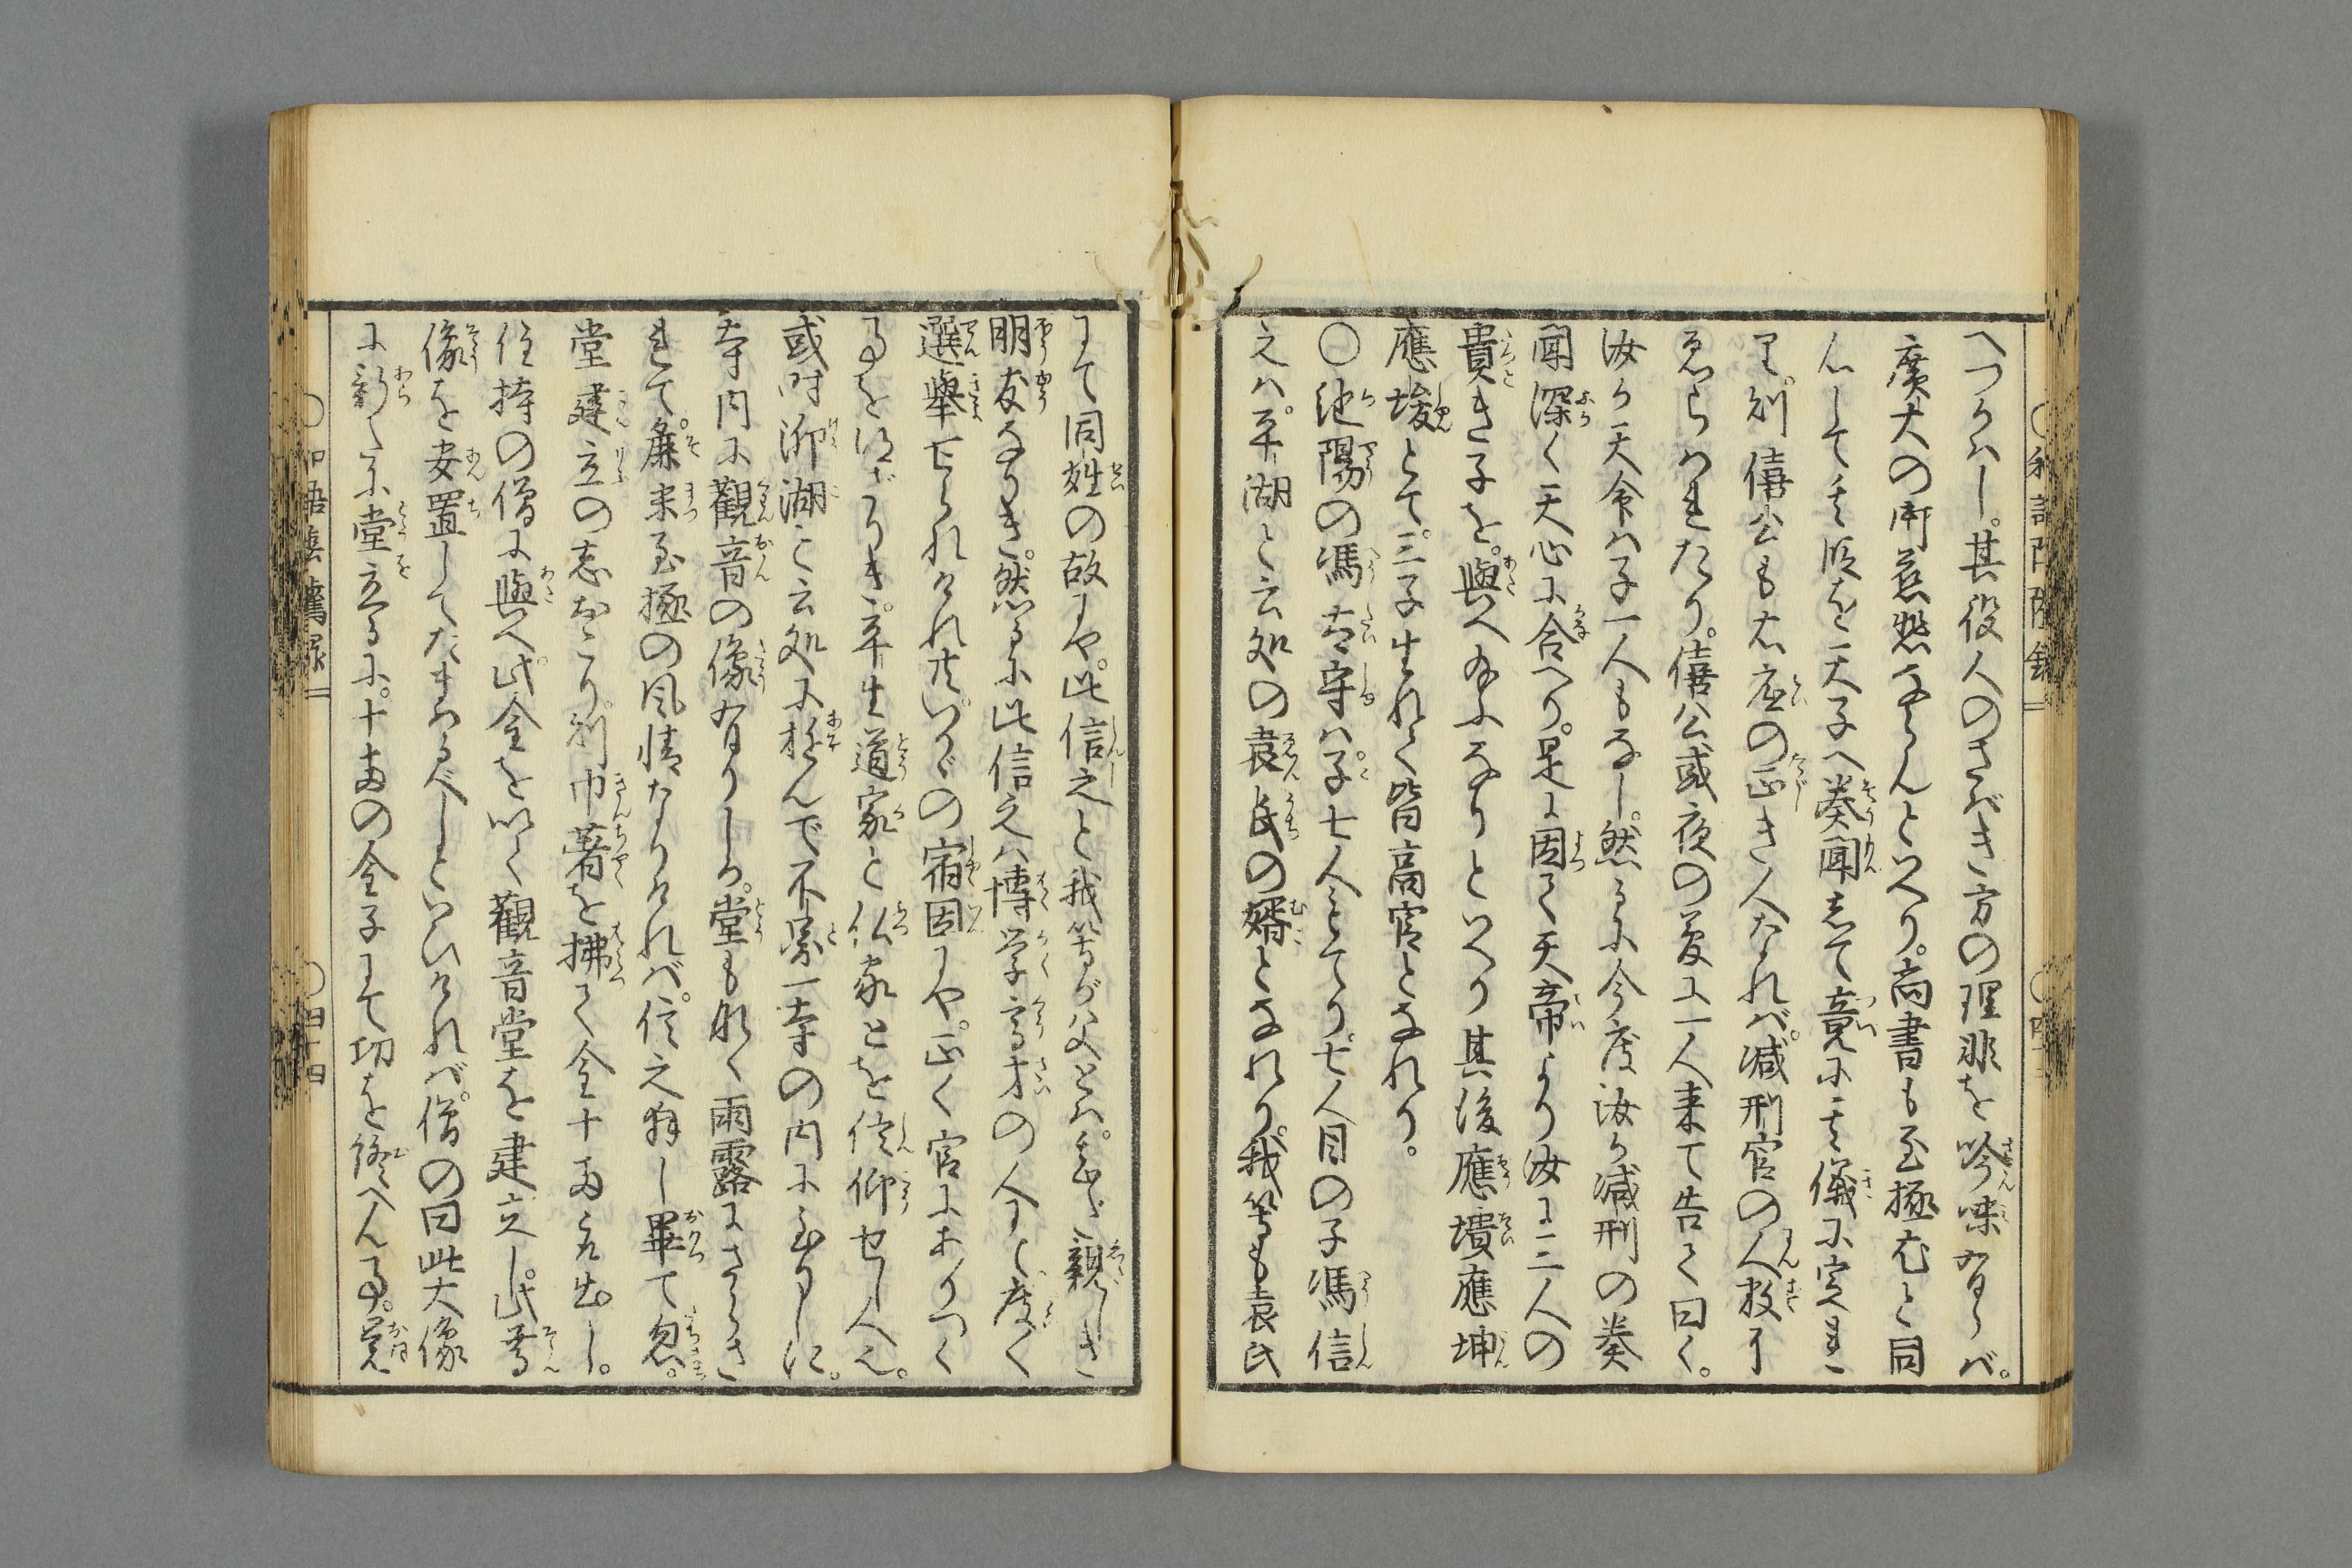 へつかハし。其役人のさばき方の理非を吟味有らバ。
廣大の御慈悲ならんといへり。尚書も至極尤と同
心して其段を天子へ奏聞して竟に其儀に定まれ
り。則僖公も右座の正き人なれバ。減刑官の人数に
ゑらはれたり。僖公或夜の夢に一人来て告て曰く。
汝か天命ハ子一人もなし。然るに今度汝か減刑の奏
聞深く天心に合へり。是に因て天帝より汝に三人の
貴き子を。與へ給ふなりといへり其後應壙應坤
應埈とて。三子生れて皆高官となれり。
〇池陽の馮太守ハ。子七人もてり。七人目の子馮信
之ハ。平湖と云処の袁氏の婿となれり。我等も袁氏
にて同姓の故にや。此信之と我等が父とハ。甚ダ親しき
朋友なりき。然るに此信之ハ博学高才の人にて度〱
選挙せられけれ共。いかゞの宿因にや。正く官にありつく
事を得ざりき。平生道家と仏家とを信仰せし人也。
或时泖湖と云処に遊んで不圖一寺の内に至りしに。
寺内に觀音の像有りしか。堂も朽て雨露にさらさ
れて。麁末至極の风情なりけれバ。信之拜し畢て忽。
堂建立の志おこり。則巾著を拂て金十両取出し。
住持の僧に與へ。此金を以て觀音堂を建立し。此尊
像を安置してたまはるべしといひけれバ。僧の曰此大像
に新に堂立るに。十両の金子にて功を終へん事。覚
〇和語陰隲録
〇四十四